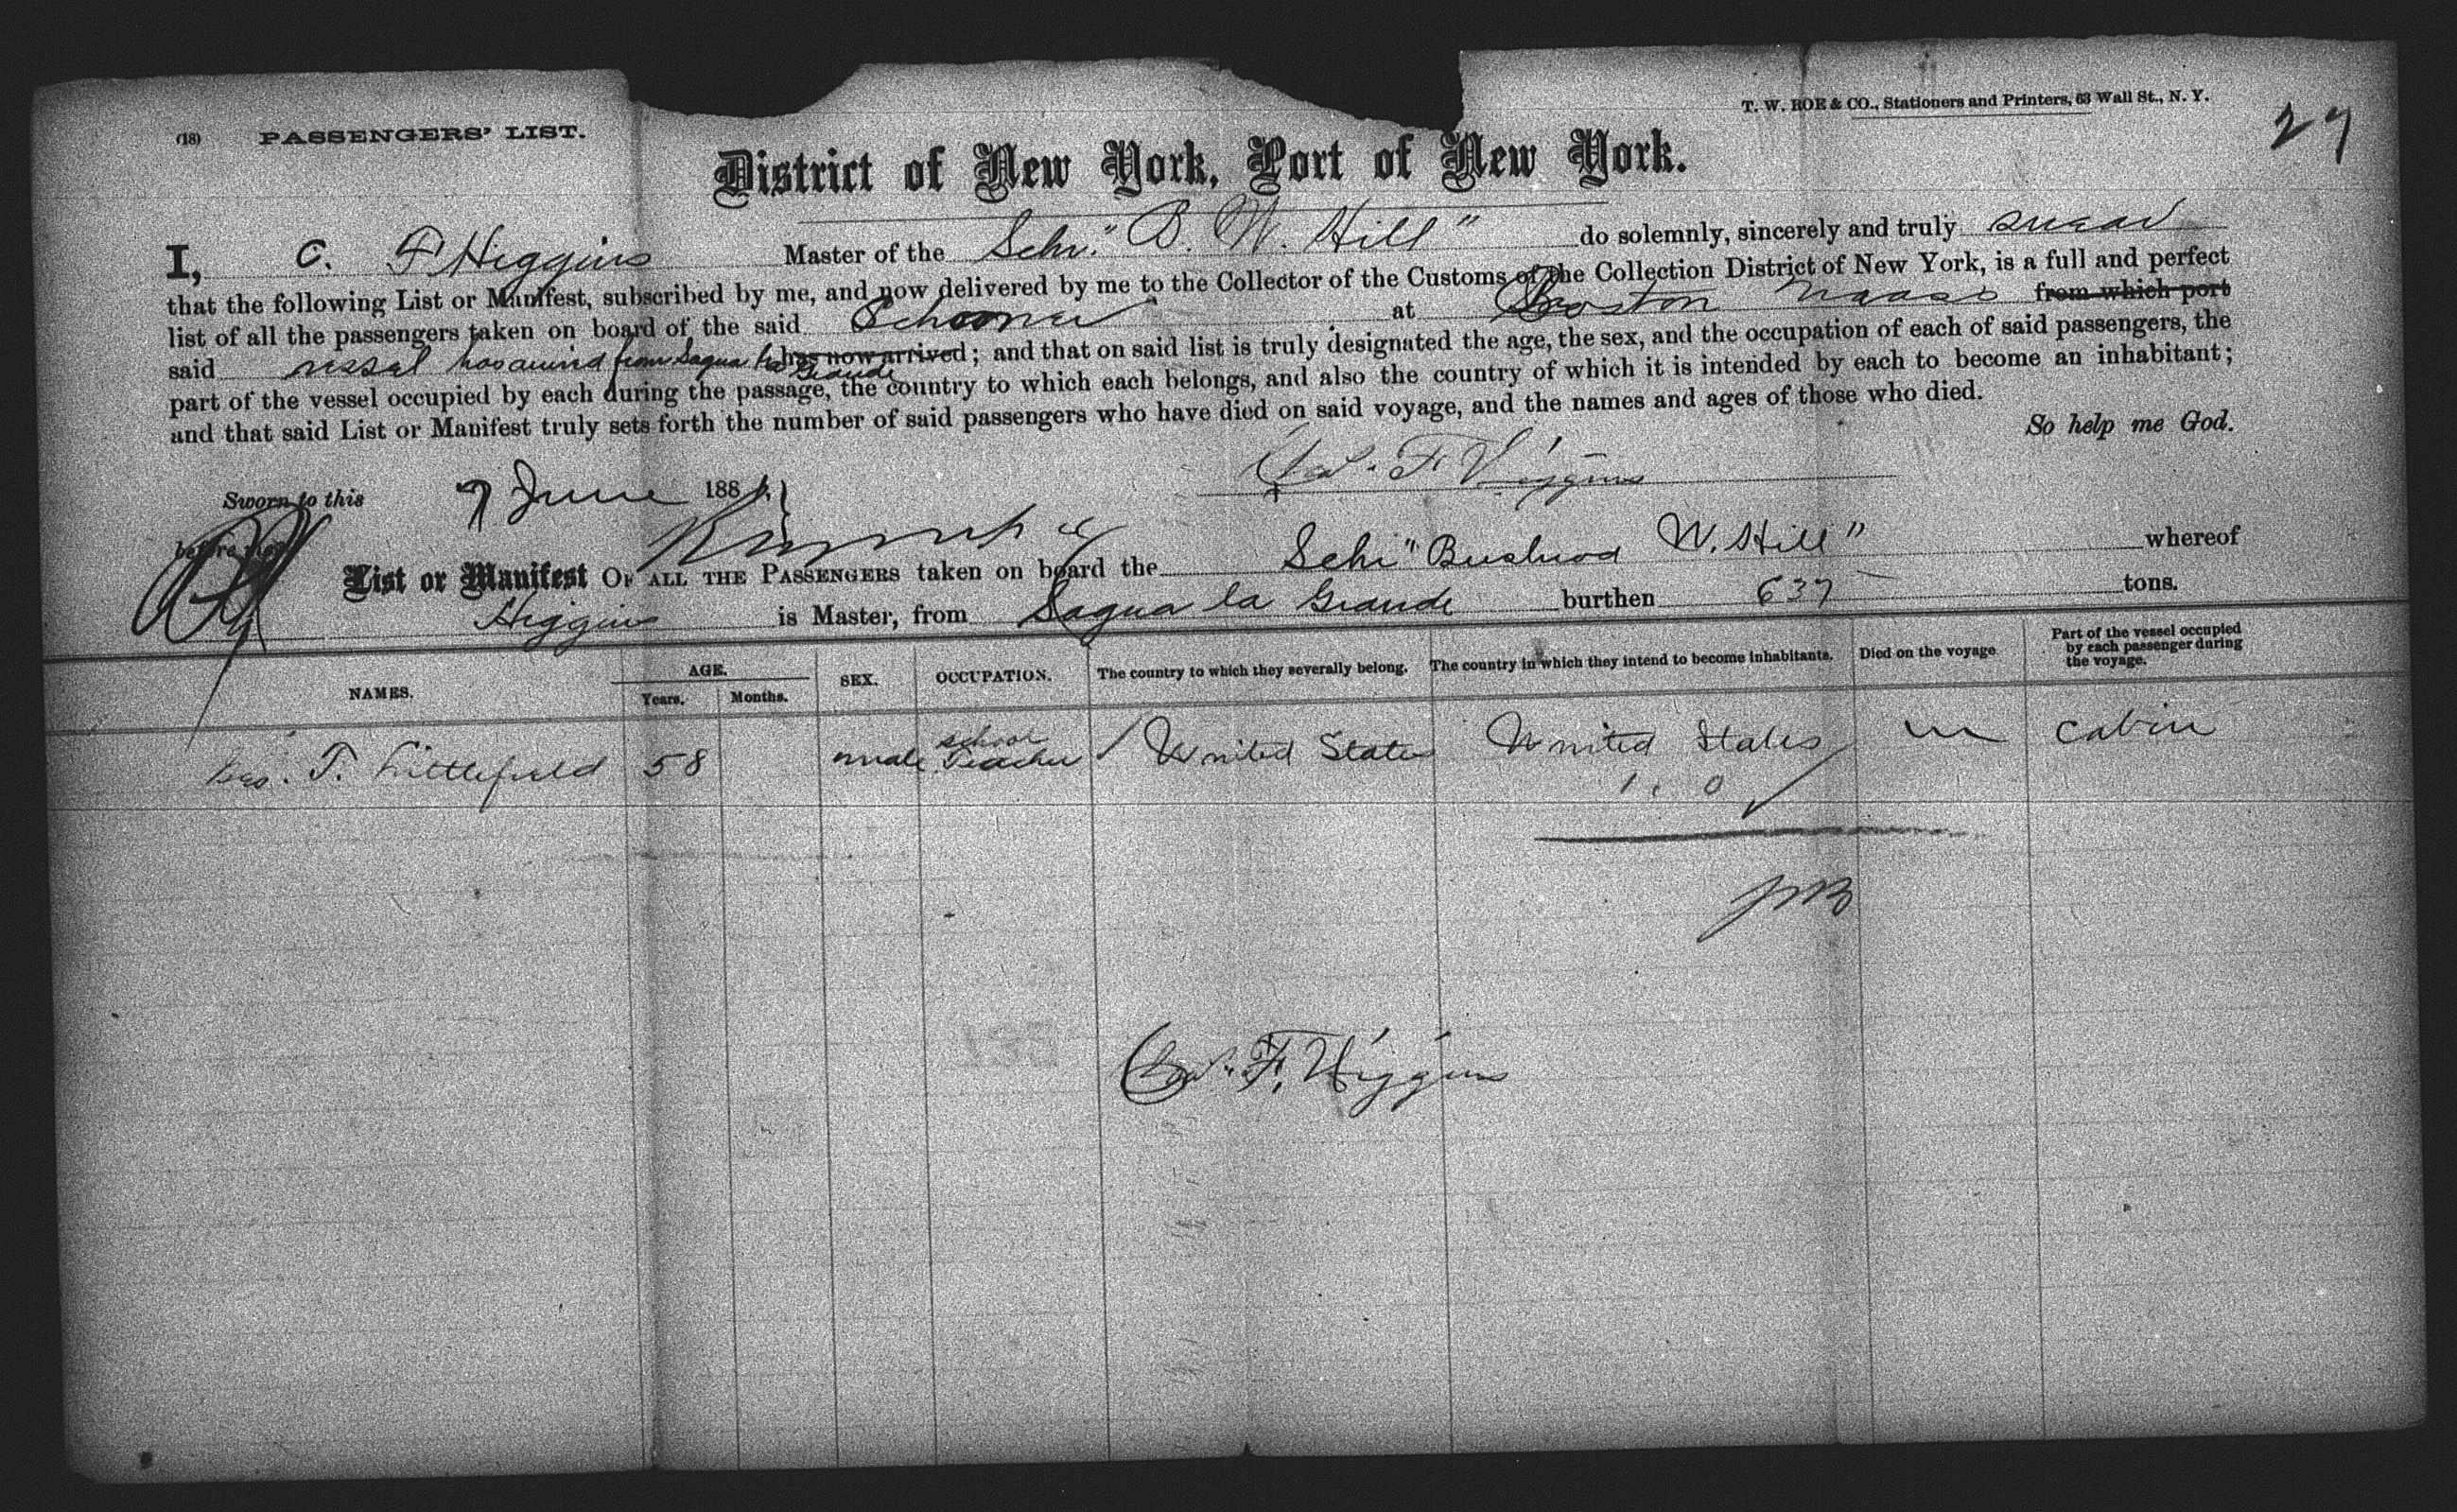 T. W. ROE & CO., Stationers and Printers, 63 Wall St., N. Y.
27
(18) PASSENGERS' LIST.
District of New York, Port of New York.
I, C. F Higgins Master of the Schr. "B. W. Hill" do solemnly, sincerely and truly swear
that the following List or Manifest, subscribed by me, and now delivered by me to the Collector of the Customs of the Collection District of New York, is a full and perfect
list of all the passengers taken on board of the said Schooner at Boston Mass from which port
said vessel has arrived from Sagua la Grande has now arrived; and that on said list is truly designated the age, the sex, and the occupation of each of said passengers, the
part of the vessel occupied by each during the passage, the country to which each belongs, and also the country of which it is intended by each to become an inhabitant;
and that said List or Manifest truly sets forth the number of said passengers who have died on said voyage, and the names and ages of those who died.
So help me God.
F. Higgins
Sworn to this 7 June 188
before me
List or Manifest OF ALL THE PASSENGERS taken on board the Schr "Bushrod W. Hill" whereof
Higgins is Master, from Sagua la Grande burthen 637 tons.
NAMES. AGE. Years. Months. SEX. OCCUPATION. The country to which they severally belong. The country in which they intend to become inhabitants. Died on the voyage. Part of the vessel occupied by each passenger during the voyage.
Geo. T. Littlefield 58 male school Teacher United States United States cabin
1. 0
F. Higgins